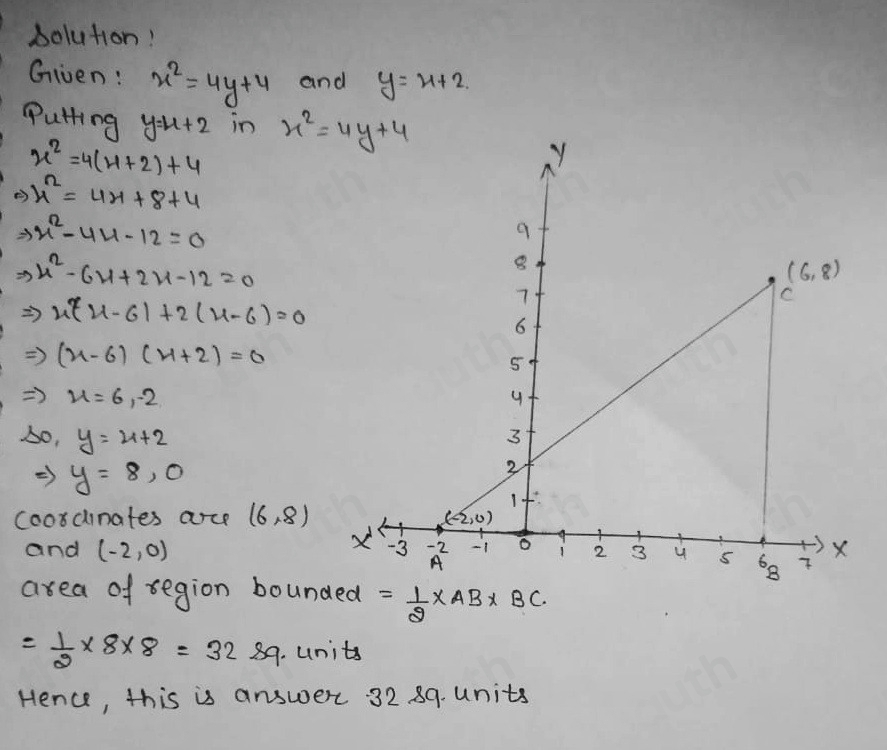 Solution!
Given: x² = 4y+4 and y = x+2.
Putting y=x+2 in x² = 4y+4
x² = 4(x+2)+4
⇒ x² = 4x+8+4
⇒ x² - 4x - 12 = 0
⇒ x² - 6x + 2x - 12 = 0
⇒ x(x-6) + 2(x-6) = 0
⇒ (x-6) (x+2) = 0
⇒ x = 6, -2
So, y = x+2
⇒ y = 8, 0
Coordinates are (6,8)
and (-2,0)
area of region bounded = 1/2 × AB × BC.
= 1/2 × 8×8 = 32 sq. units
Hence, this is answer 32 sq. units
Y
9
8
7
6
5
4
3
2
1
(6,8)
C
(-2,0)
X' -3 -2 -1 0 1 2 3 4 5 6 7 X
A B